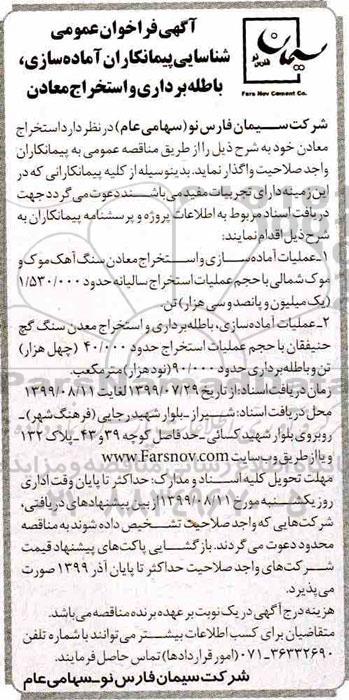 آگهی فراخوان عمومی
شناسایی پیمانکاران آماده‌سازی،
باطله‌برداری و استخراج معادن
سیمان
فارس نو
Fars Nov Cement Co.
شرکت سیمان فارس نو (سهامی عام) در نظر دارد استخراج
معادن خود به شرح ذیل را از طریق مناقصه عمومی به پیمانکاران
واجد صلاحیت واگذار نماید. بدینوسیله از کلیه پیمانکارانی که در
این زمینه دارای تجربیات مفید می باشند دعوت می گردد جهت
دریافت اسناد مربوط به اطلاعات پروژه و پرسشنامه پیمانکاران به
شرح ذیل اقدام نمایند:
۱ـ عملیات آماده سازی و استخراج معادن سنگ آهک موک و
موک شمالی با حجم عملیات استخراج سالیانه حدود ۱/۵۳۰/۰۰۰
(یک میلیون و پانصد و سی هزار) تن.
۲ـ عملیات آماده‌سازی، باطله‌برداری و استخراج معدن سنگ گچ
حنیفقان با حجم عملیات استخراج حدود ۴۰/۰۰۰ (چهل هزار)
تن و باطله برداری حدود ۹۰/۰۰۰ (نود هزار) متر مکعب.
زمان دریافت اسناد: از تاریخ ۱۳۹۹/۰۷/۲۹ لغایت ۱۳۹۹/۰۸/۱۱
محل دریافت اسناد: شیراز ـ بلوار شهید رجایی (فرهنگ شهر) ـ
روبروی بلوار شهید کسائی ـ حد فاصل کوچه ۳۹ و ۴۳ ـ پلاک ۱۳۲
و یا از طریق وب سایت www.Farsnov.com
مهلت تحویل کلیه اسناد و مدارک: حداکثر تا پایان وقت اداری
روز یکشنبه مورخ ۱۳۹۹/۰۸/۱۱ از بین پیشنهادهای دریافتی،
شرکت‌هایی که واجد صلاحیت تشخیص داده شوند به مناقصه
محدود دعوت می گردند. بازگشایی پاکت‌های پیشنهاد قیمت
شرکت‌های واجد صلاحیت حداکثر تا پایان آذر ۱۳۹۹ صورت
می‌پذیرد.
هزینه درج آگهی در یک نوبت بر عهده برنده مناقصه می‌باشد.
متقاضیان برای کسب اطلاعات بیشتر می توانند با شماره تلفن
۰۷۱-۳۶۳۳۲۶۹۰ (امور قراردادها) تماس حاصل فرمایند.
شرکت سیمان فارس نو ـ سهامی عام